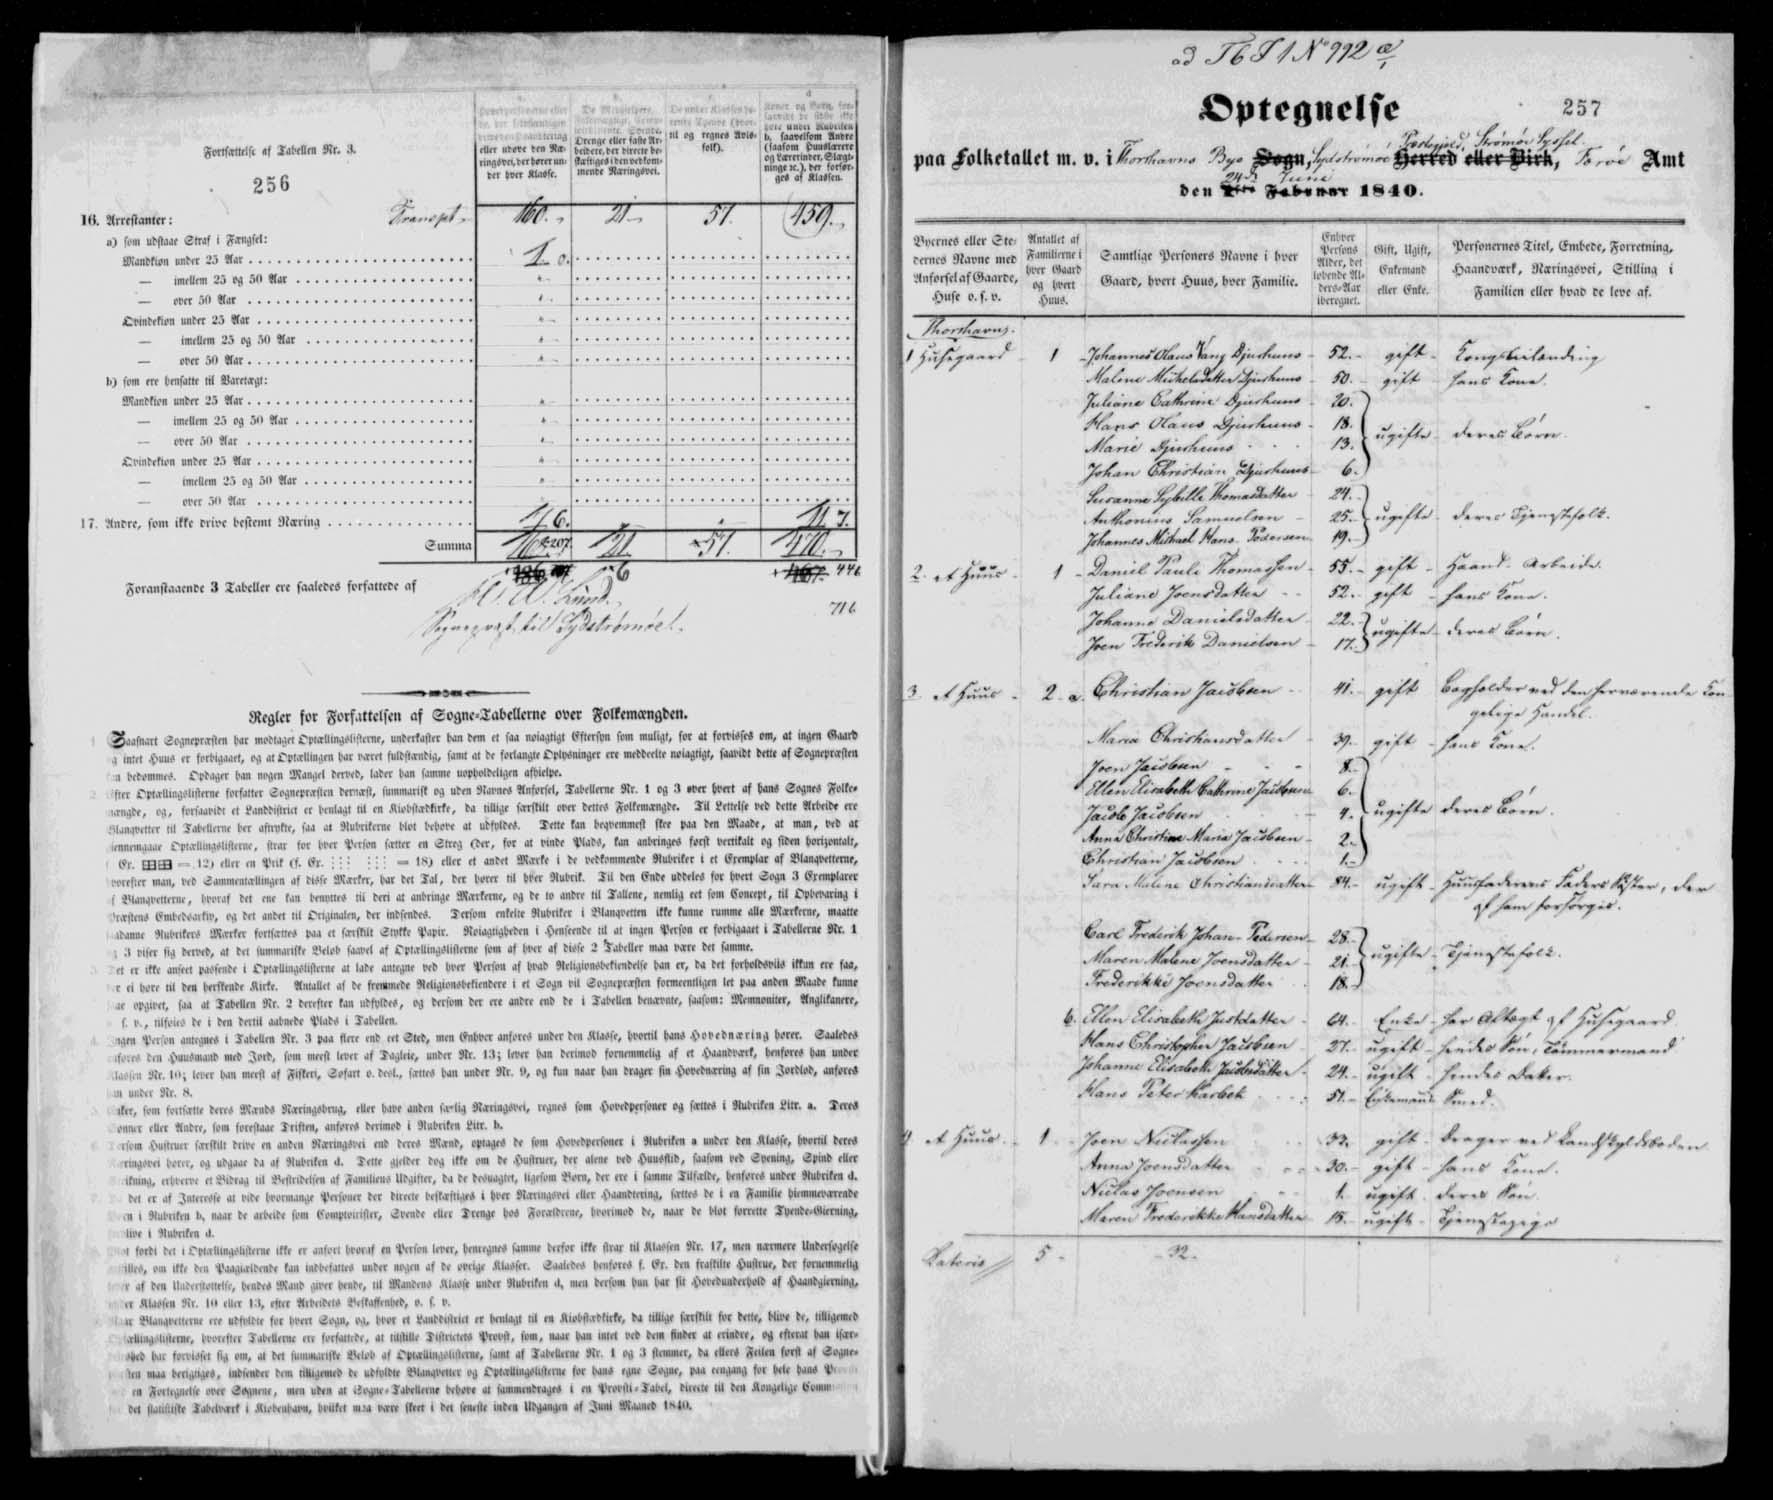 Fortsættelse af Tabellen Nr. 3.
256
eller udøve den Næ-
ringsvei, der hører un-
der hver Klasse.
Drenge eller faste Ar-
beidere, der directe be-
skæftiges i den vedkom-
mende Næringsvei.
til og regnes Avls-
folk).
d
b, saavelsom Andre
(saasom Huuslærere
og Lærerinder, Slægt-
ninge ꝛc.), der forsør-
ges af Klassen.
16. Arrestanter: Transpt. 160. 21 57. 459.
a) som udstaae Straf i Fængsel:
Mandkiøn under 25 Aar
— imellem 25 og 50 Aar
— over 50 Aar
Qvindekiøn under 25 Aar
— imellem 25 og 50 Aar
— over 50 Aar
b) som ere hensatte til Varetægt:
Mandkiøn under 25 Aar
— imellem 25 og 50 Aar
— over 50 Aar
Qvindekiøn under 25 Aar
— imellem 25 og 50 Aar
— over 50 Aar
17. Andre, som ikke drive bestemt Næring
Summa 21. 57. 470.
446
Foranstaaende 3 Tabeller ere saaledes forfattede af
Lund.
Sognepræst til Sydstrømøe.
716
Regler for Forfattelsen af Sogne-Tabellerne over Folkemængden.
Saasnart Sognepræsten har modtaget Optællingslisterne, underkaster han dem et saa nøiagtigt Eftersyn som muligt, for at forvisses om, at ingen Gaard
intet Huus er forbigaaet, og at Optællingen har været fuldstændig, samt at de forlangte Oplysninger ere meddeelte nøiagtigt, saavidt dette af Sognepræsten
bedømmes. Opdager han nogen Mangel derved, lader han samme uopholdeligen afhielpe.
Efter Optællingslisterne forfatter Sognepræsten dernæst, summarisk og uden Navnes Anførsel, Tabellerne Nr. 1 og 3 over hvert af hans Sognes Folke-
mængde, og, forsaavidt et Landdistrict er henlagt til en Kiøbstædkirke, da tillige særskilt over dettes Folkemængde. Til Lettelse ved dette Arbeide ere
Blanqvetter til Tabellerne her aftrykte, saa at Rubrikerne blot behøve at udfyldes. Dette kan beqvemmest skee paa den Maade, at man, ved at
giennemgaae Optællingslisterne, strax for hver Person sætter en Streg (der, for at vinde Plads, kan anbringes først vertikalt og siden horizontalt,
Ex. = 12) eller en Prik (f. Ex. = 18) eller et andet Mærke i de vedkommende Rubriker i et Exemplar af Blanqvetterne,
hvorefter man, ved Sammentællingen af disse Mærker, har det Tal, der hører til hver Rubrik. Til den Ende uddeles for hvert Sogn 3 Exemplarer
af Blanqvetterne, hvoraf det ene kan benyttes til deri at anbringe Mærkerne, og de to andre til Tallene, nemlig eet som Concept, til Opbevaring i
Præstens Embedsarkiv, og det andet til Originalen, der indsendes. Dersom enkelte Rubriker i Blanqvetten ikke kunne rumme alle Mærkerne, maatte
saadanne Rubrikers Mærker fortsættes paa et særskilt Stykke Papir. Nøiagtigheden i Henseende til at ingen Person er forbigaaet i Tabellerne Nr. 1
3 viser sig derved, at det summariske Beløb saavel af Optællingslisterne som af hver af disse 2 Tabeller maa være det samme.
Det er ikke anseet passende i Optællingslisterne at lade antegne ved hver Person af hvad Religionsbekiendelse han er, da det forholdsviis ikkun ere faa,
ei høre til den herskende Kirke. Antallet af de fremmede Religionsbekiendere i et Sogn vil Sognepræsten formeentligen let paa anden Maade kunne
opgivet, saa at Tabellen Nr. 2 derefter kan udfyldes, og dersom der ere andre end de i Tabellen benævnte, saasom: Memnoniter, Anglikanere,
f. v., tilføies de i den dertil aabnede Plads i Tabellen.
Ingen Person antegnes i Tabellen Nr. 3 paa flere end eet Sted, men Enhver anføres under den Klasse, hvortil hans Hovednæring hører. Saaledes
anføres den Huusmand med Jord, som meest lever af Dagleie, under Nr. 13; lever han derimod fornemmelig af et Haandværk, henføres han under
Klassen Nr. 10; lever han meest af Fiskeri, Søfart o. desl., sættes han under Nr. 9, og kun naar han drager sin Hovednæring af sin Jordlod, anføres
han under Nr. 8.
Enker, som fortsætte deres Mænds Næringsbrug, eller have anden særlig Næringsvei, regnes som Hovedpersoner og sættes i Rubriken Litr. a. Deres
Sønner eller Andre, som forestaae Driften, anføres derimod i Rubriken Litr. b.
Dersom Hustruer særskilt drive en anden Næringsvei end deres Mænd, optages de som Hovedpersoner i Rubriken a under den Klasse, hvortil deres
Næringsvei hører, og udgaae da af Rubriken d. Dette gielder dog ikke om de Hustruer, der alene ved Huusflid, saasom ved Syening, Spind eller
Strikning, erhverve et Bidrag til Bestridelsen af Familiens Udgifter, da de desuagtet, ligesom Børn, der ere i samme Tilfælde, henføres under Rubriken d.
det er af Interesse at vide hvormange Personer der directe beskæftiges i hver Næringsvei eller Haandtering, sættes de i en Familie hiemmeværende
i Rubriken b, naar de arbeide som Comptoirister, Svende eller Drenge hos Forældrene, hvorimod de, naar de blot forrette Tyende-Gierning,
blive i Rubriken d.
Blot fordi det i Optællingslisterne ikke er anført hvoraf en Person lever, henregnes samme derfor ikke strax til Klassen Nr. 17, men nærmere Undersøgelse
om ikke den Paagiældende kan indbefattes under nogen af de øvrige Klasser. Saaledes henføres f. Ex. den fraskilte Hustrue, der fornemmelig
lever af den Understøttelse, hendes Mand giver hende, til Mandens Klasse under Rubriken d, men dersom hun har sit Hovedunderhold af Haandgierning,
under Klassen Nr. 10 eller 13, efter Arbeidets Beskaffenhed, o. s. v.
Naar Blanqvetterne ere udfyldte for hvert Sogn, og, hvor et Landdistrict er henlagt til en Kiøbstædkirke, da tillige særskilt for dette, blive de, tilligemed
Optællingslisterne, hvorefter Tabellerne ere forfattede, at tilstille Districtets Provst, som, naar han intet ved dem finder at erindre, og efterat han især
har forvisset sig om, at det summariske Beløb af Optællingslisterne, samt af Tabellerne Nr. 1 og 3 stemmer, da ellers Feilen først af Sogne-
præsten maa berigtiges, indsender dem tilligemed de udfyldte Blanqvetter og Optællingslisterne for hans egne Sogne, paa eengang for hele hans
en Fortegnelse over Sognene, men uden at Sogne-Tabellerne behøve at sammendrages i en Provsti-Tabel, directe til den Kongelige
det statistiske Tabelværk i Kiøbenhavn, hvilket maa være skeet i det seneste inden Udgangen af Juni Maaned 1840.
ad T6 T1 No 992
Optegnelse 257
Præstegield, Strømøe Syssel
paa Folketallet m. v. i Thorshavns Bye Sogn, Sydstrømøe Herred eller Birk, Færøe Amt
24d Juni
den 1ste Februar 1840.
Byernes eller Ste-
dernes Navne med
Anførsel af Gaarde,
Huse o. s. v.
Antallet af
Familierne i
hver Gaard
og hvert
Huus.
Samtlige Personers Navne i hver
Gaard, hvert Huus, hver Familie.
Enhver
Persons
Alder, det
løbende Al-
ders-Aar
iberegnet.
Gift, Ugift,
Enkemand
eller Enke.
Personernes Titel, Embede, Forretning,
Haandværk, Næringsvei, Stilling i
Familien eller hvad de leve af.
Thorshavn.
1 Husegaard 1 Johannes Olaus Vang Djurhuus 52. gift
Malene Michelsdatter Djurhuus 50. gift hans Kone.
Juliane Cathrine Djurhuus 20.
Hans Olaus Djurhuus 18. ugifte deres Børn.
Marie Djurhuus 13.
Johan Christian Djurhuus 6.
Susanne Sybille Thomasdatter 24.
Anthonius Samuelsen 25. ugifte deres Tjenestefolk.
Johannes Michael Hans Pedersen 19.
2. et Huus 1 Daniel Pauli Thomassen 55. gift Haand. Arbeide.
Juliane Joensdatter 52. gift hans Kone.
Johanne Danielsdatter 22. ugifte deres Børn.
Joen Frederik Danielsen 17.
3. et Huus 2 a. Christian Jacobsen 41. gift Bogholder ved den herværende Kon-
gelige Handel.
Maria Christiansdatter 39. gift hans Kone.
Joen Jacobsen 8.
Ellen Elisabeth Cathrine Jacobsen 6.
Jacob Jacobsen 4. ugifte deres Børn.
Anna Christine Maria Jacobsen 2.
Christian Jacobsen 1.
Sara Malene Christiansdatter 84. ugift Huusfaderens Faders Søster, der
af ham forsørges.
Carl Frederik Johan Pedersen 28.
Maren Malene Joensdatter 21. ugifte Tjenestefolk.
Frederikke Joensdatter 18.
b. Ellen Elisabeth Justdatter 64. Enke har Aftægt af Husegaard
Hans Christopher Jacobsen 27. ugift hendes Søn, Tømmermand
Johanne Elisabeth Jacobsdatter 24. ugift hendes Datter.
Hans Peter Harbek 51. Enkemand Smed.
4 et Huus 1 Joen Niclassen 33. gift Drager ved Landskyldsboden
Anna Joensdatter 30. gift hans Kone.
Niclas Joensen 1. ugift deres Søn.
Maren Frederikke Hansdatter 15. ugift Tjenestepige
Lateris 5 32